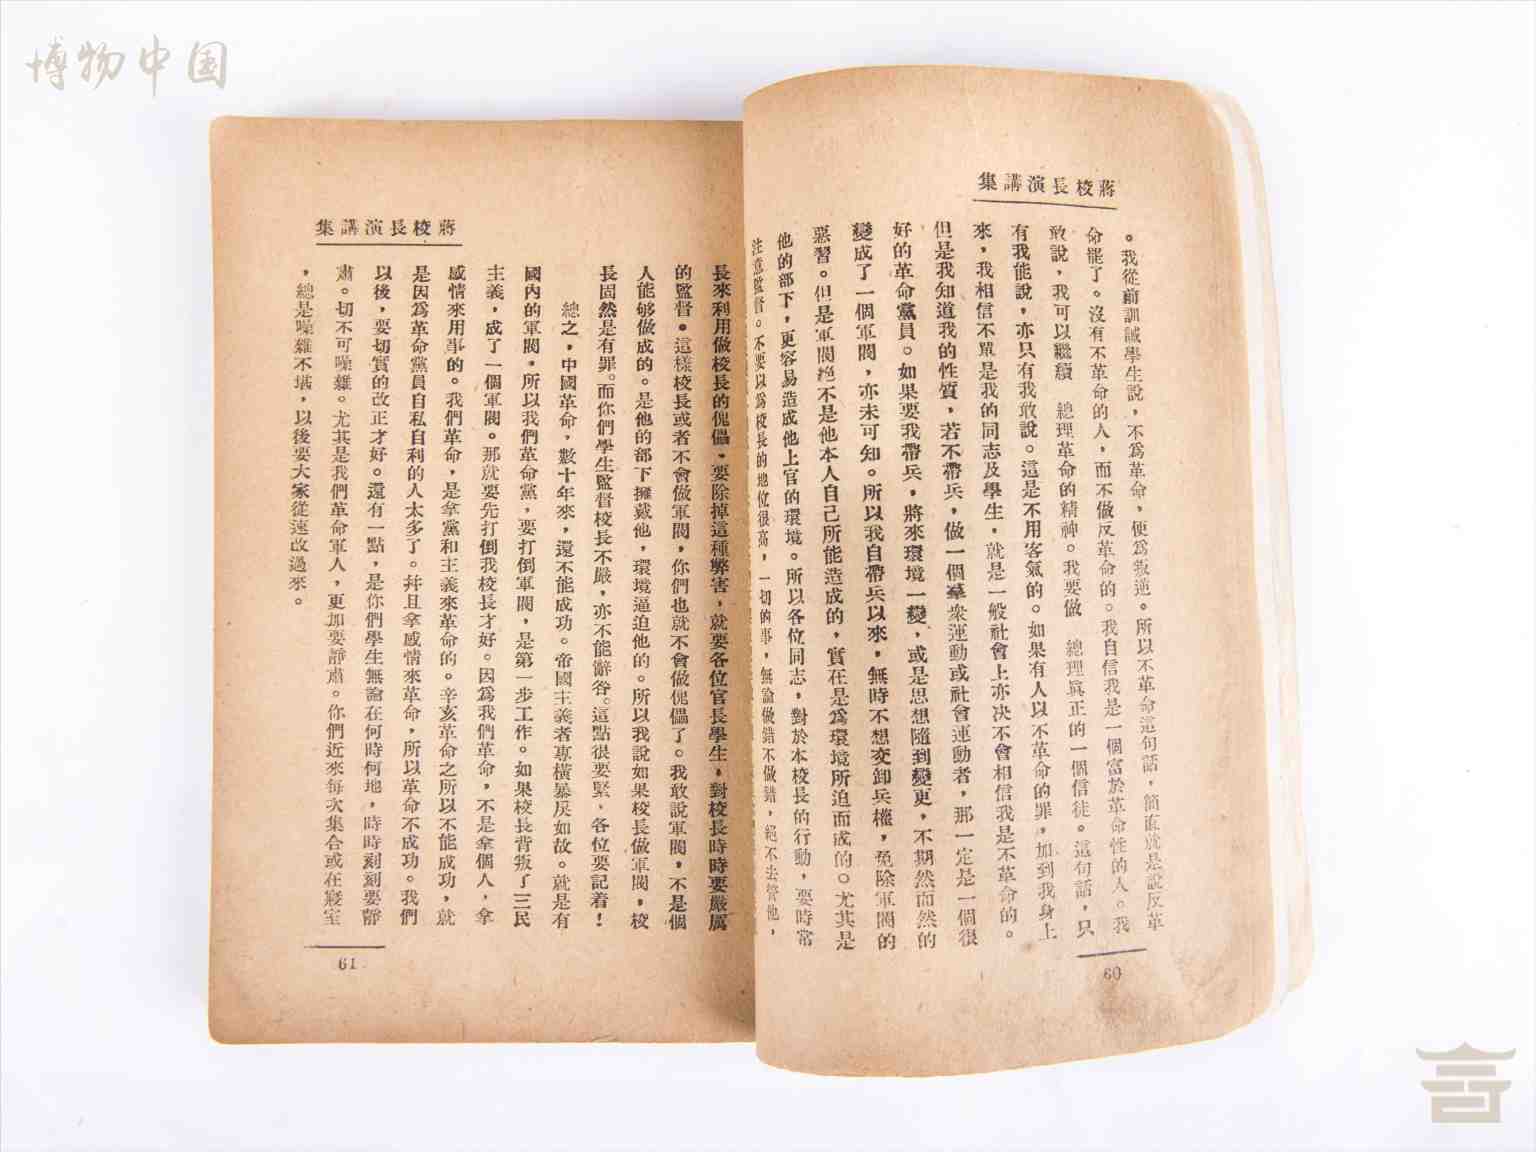 博物中国
蔣校長演講集
。我從前訓誡學生說，不爲革命，便爲叛逆。所以不革命這句話，簡直就是說反革
命罷了。沒有不革命的人，而不做反革命的。我自信我是一個富於革命性的人。我
敢說，我可以繼續　總理革命的精神。我要做　總理眞正的一個信徒。這句話，只
有我能說，亦只有我敢說。這是不用客氣的。如果有人以不革命的罪，加到我身上
來，我相信不單是我的同志及學生，就是一般社會上亦決不會相信我是不革命的。
但是我知道我的性質，若不帶兵，做一個羣衆運動或社會運動者，那一定是一個很
好的革命黨員。如果要我帶兵，將來環境一變，或是思想隨到變更，不期然而然的
變成了一個軍閥，亦未可知。所以我自帶兵以來，無時不想交卸兵權，免除軍閥的
惡習。但是軍閥絕不是他本人自己所能造成的，實在是爲環境所迫而成的。尤其是
他的部下，更容易造成他上官的環境。所以各位同志，對於本校長的行動，要時常
注意監督。不要以爲校長的地位很高，一切的事，無論做錯不做錯，絕不去管他，
60
蔣校長演講集
長來利用做校長的傀儡，要除掉這種弊害，就要各位官長學生，對校長時時要嚴厲
的監督。這樣校長或者不會做軍閥，你們也就不會做傀儡了。我敢說軍閥，不是個
人能够做成的。是他的部下擁戴他，環境逼迫他的。所以我說如果校長做軍閥，校
長固然是有罪。而你們學生監督校長不嚴，亦不能辭咎。這點很要緊，各位要記着！
總之，中國革命，數十年來，還不能成功。帝國主義者專橫暴戾如故。就是有
國內的軍閥，所以我們革命黨，要打倒軍閥，是第一步工作。如果校長背叛了三民
主義，成了一個軍閥。那就要先打倒我校長才好。因爲我們革命，不是拿個人，拿
感情來用事的。我們革命，是拿黨和主義來革命的。辛亥革命之所以不能成功，就
是因爲革命黨員自私自利的人太多了。幷且拿感情來革命，所以革命不成功。我們
以後，要切實的改正才好。還有一點，是你們學生無論在何時何地，時時刻刻要靜
肅。切不可噪雜。尤其是我們革命軍人，更加要靜肅。你們近來每次集合或在寢室
，總是噪雜不堪，以後要大家從速改過來。
61